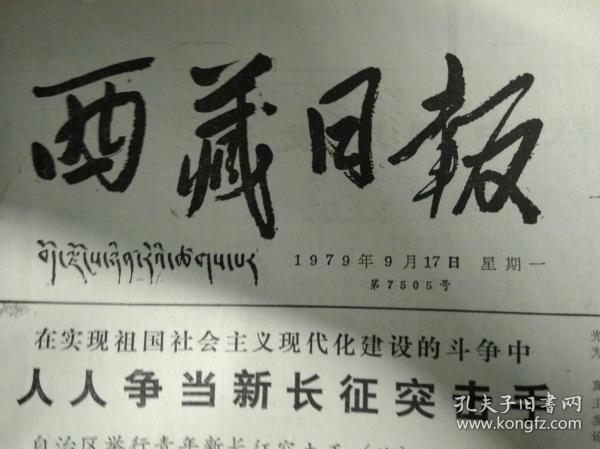 西藏日報
1979年9月17日 星期一
第7505号
在实现祖国社会主义现代化建设的斗争中
人人争当新长征突击手
自治区举行青年新长征突击手
光
为
真
主
论
孔夫子旧书网
www.kongfz.com